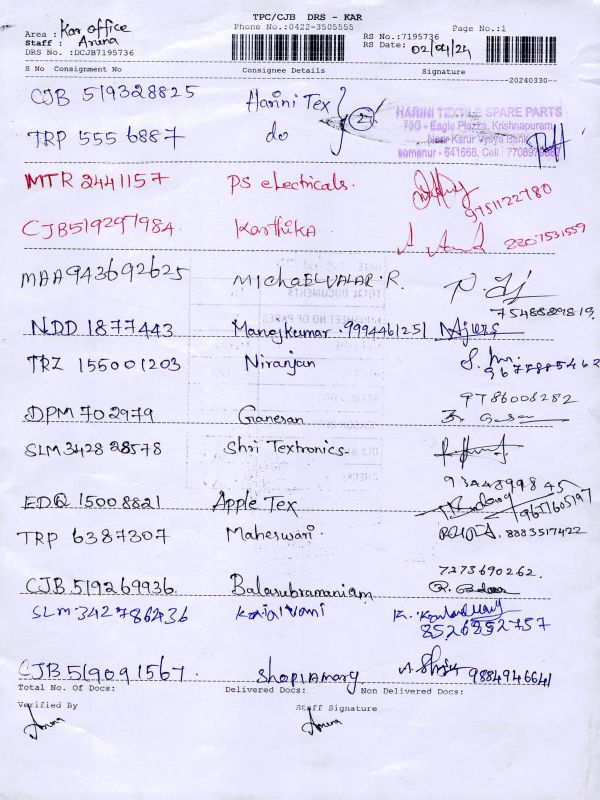 TPC/CJB DRS - KAR
Phone No.:0422-3505555
Page No.:1
Area : Kar office
Staff : Aruna
DRS No. :DCJB7195736
RS No.:7195736
RS Date: 02/04/24
S No Consignment No Consignee Details Signature
20240330
CJB 519328825 Harini Tex
TRP 5556887 do 2
HARINI TEXTILE SPARE PARTS
Eagle Plazza, Krishnapuram,
Near Karur Vysya Bank
Somanur - 641668. Cell :
MTR 2441157 PS electricals.
9751122780
CJB519297984 Karthika
2207531559
MAA943692625 MichaelValar.R.
7548889819
NDD 1877443 Manojkumar 9994461251
TRZ 155001203 Niranjan
9677885462
DPM 702979 Ganesan 9786006282
SLM 342828578 Shri Textronics
9344899845
EDQ 15008821 Apple Tex
9677605197
TRP 6387307 Maheswari 8883517422
7373690262
CJB 519269936 Balasubramaniam
SLM 342786436
8526852757
CJB 519091567 9884946641
Total No. Of Docs: Delivered Docs: Non Delivered Docs:
Verified By Staff Signature
Aruna Aruna